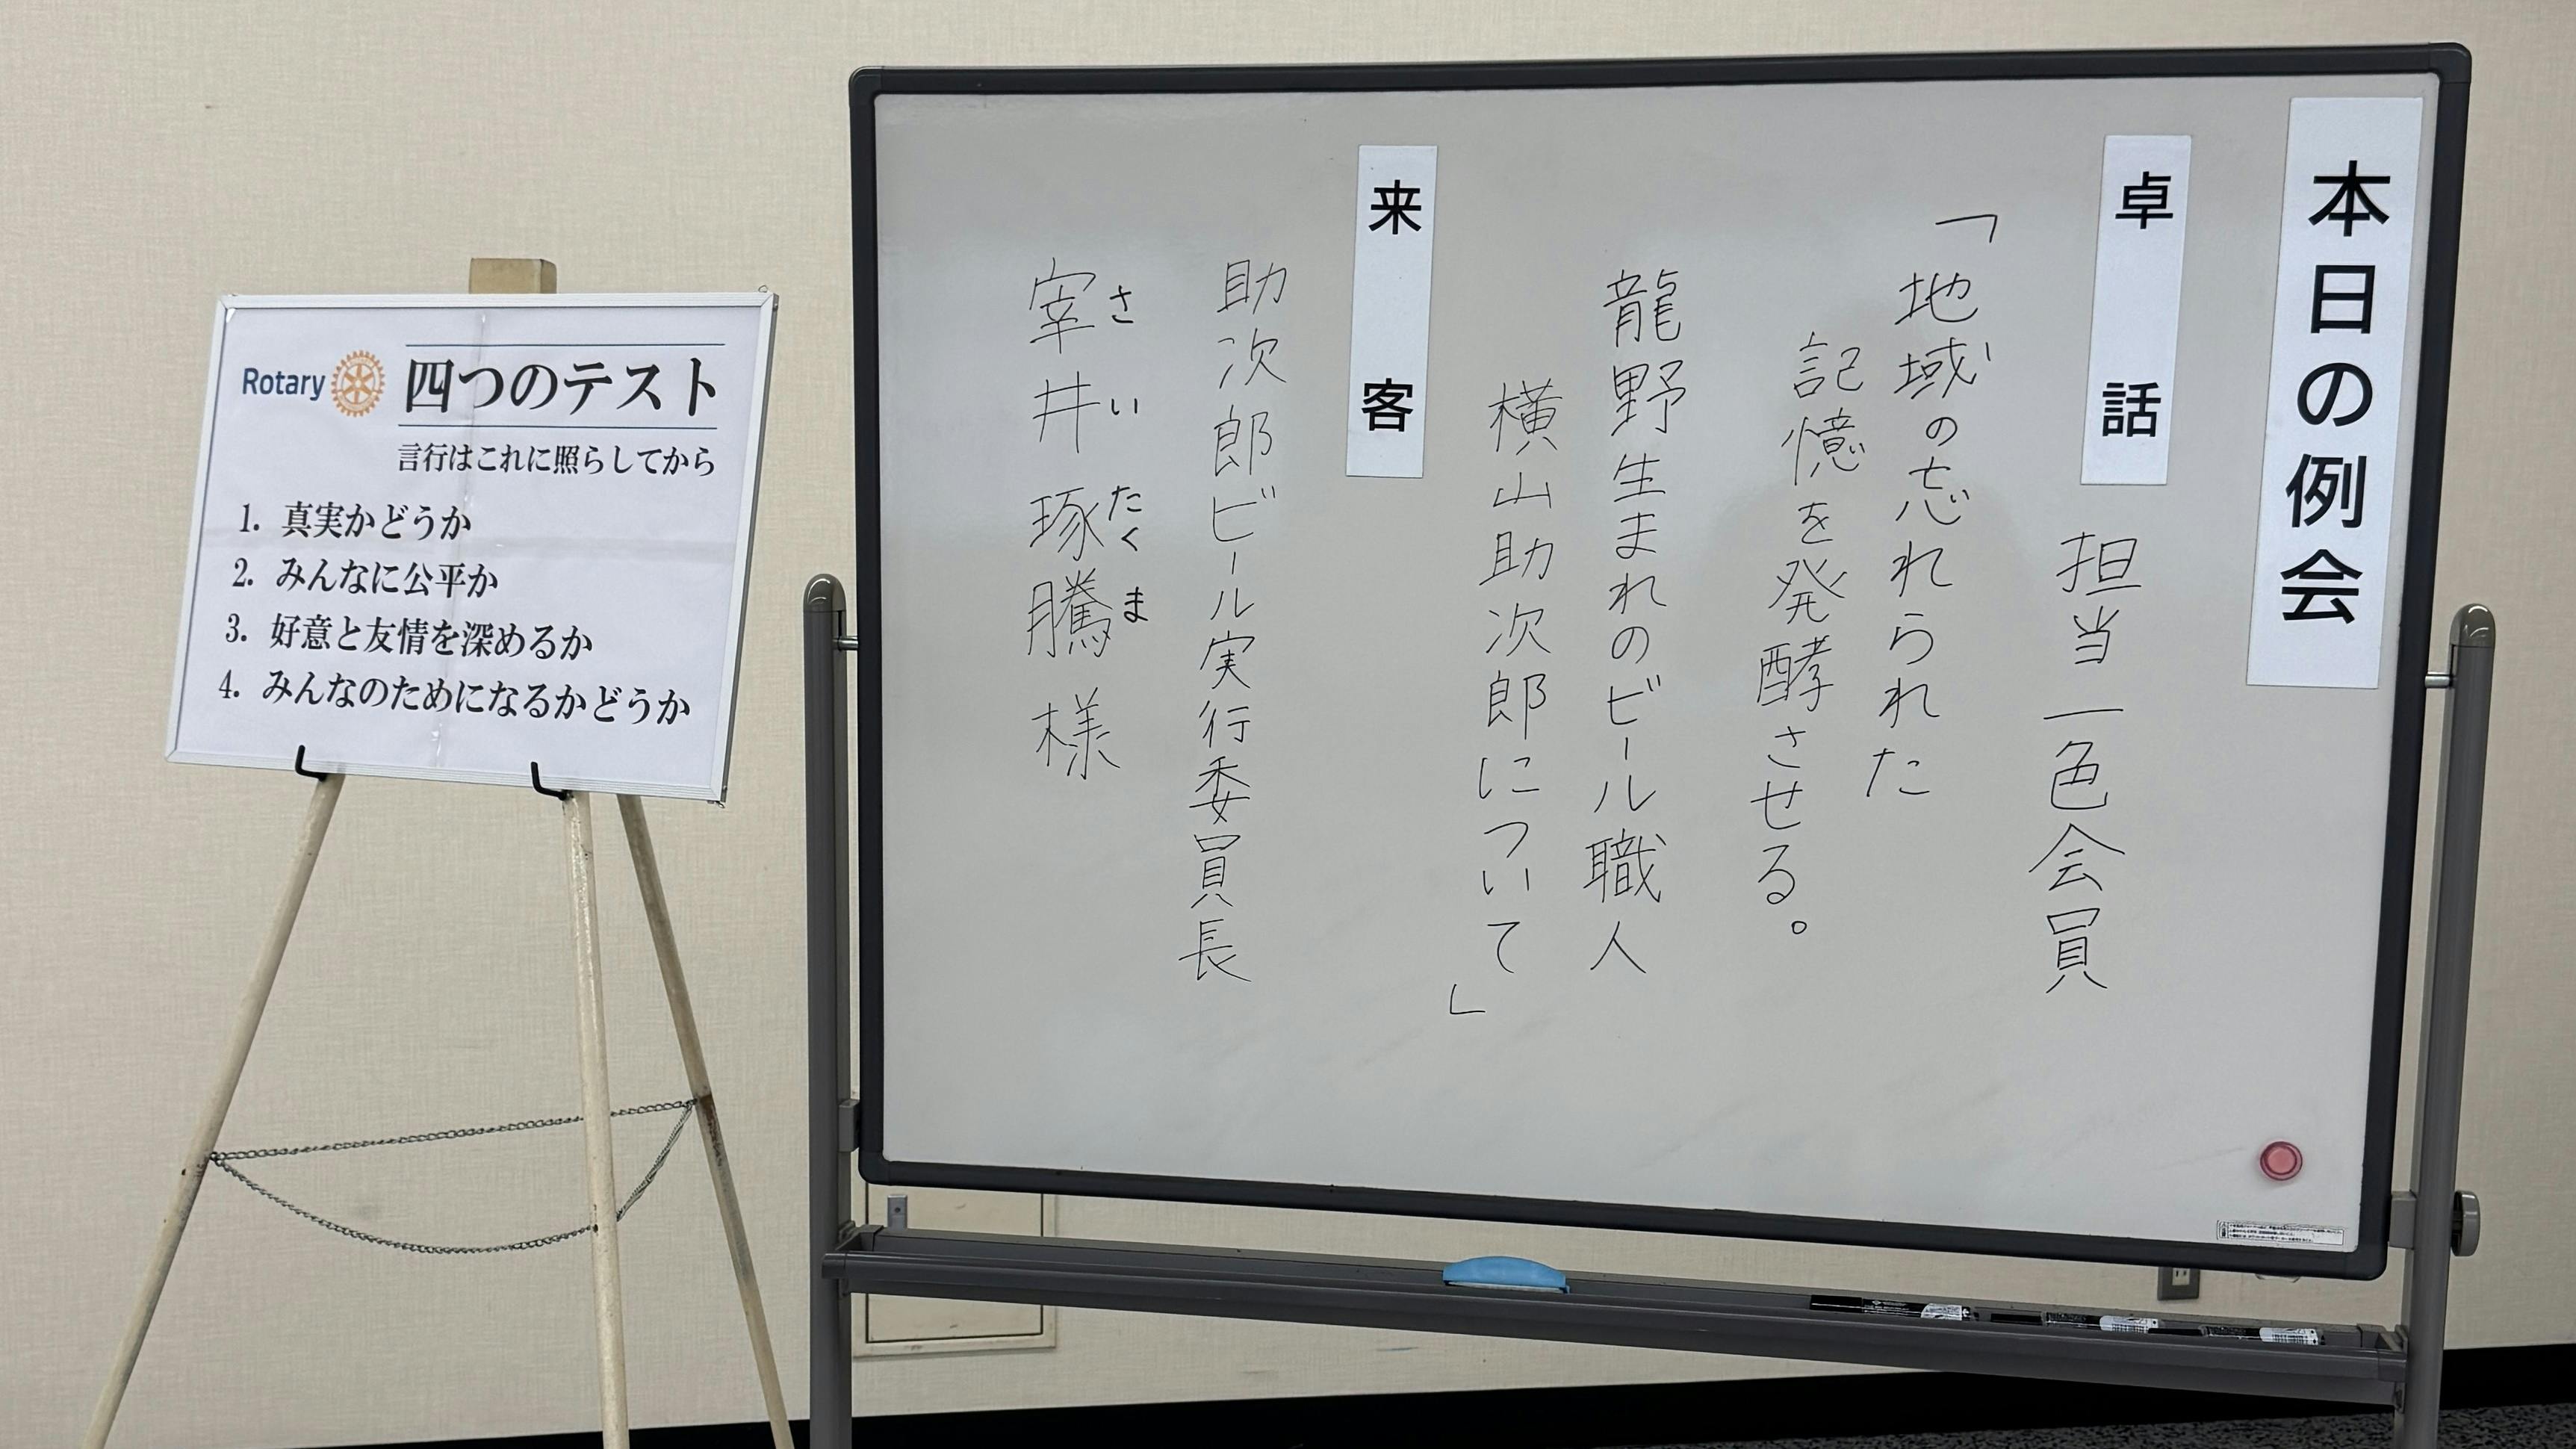 Rotary
四つのテスト
言行はこれに照らしてから
1. 真実かどうか
2. みんなに公平か
3. 好意と友情を深めるか
4. みんなのためになるかどうか
本日の例会
卓話 担当 一色会員
「地域の忘れられた
記憶を発酵させる。
龍野生まれのビール職人
横山助次郎について」
来客
助次郎ビール実行委員長
宰井琢騰様
さいたくま